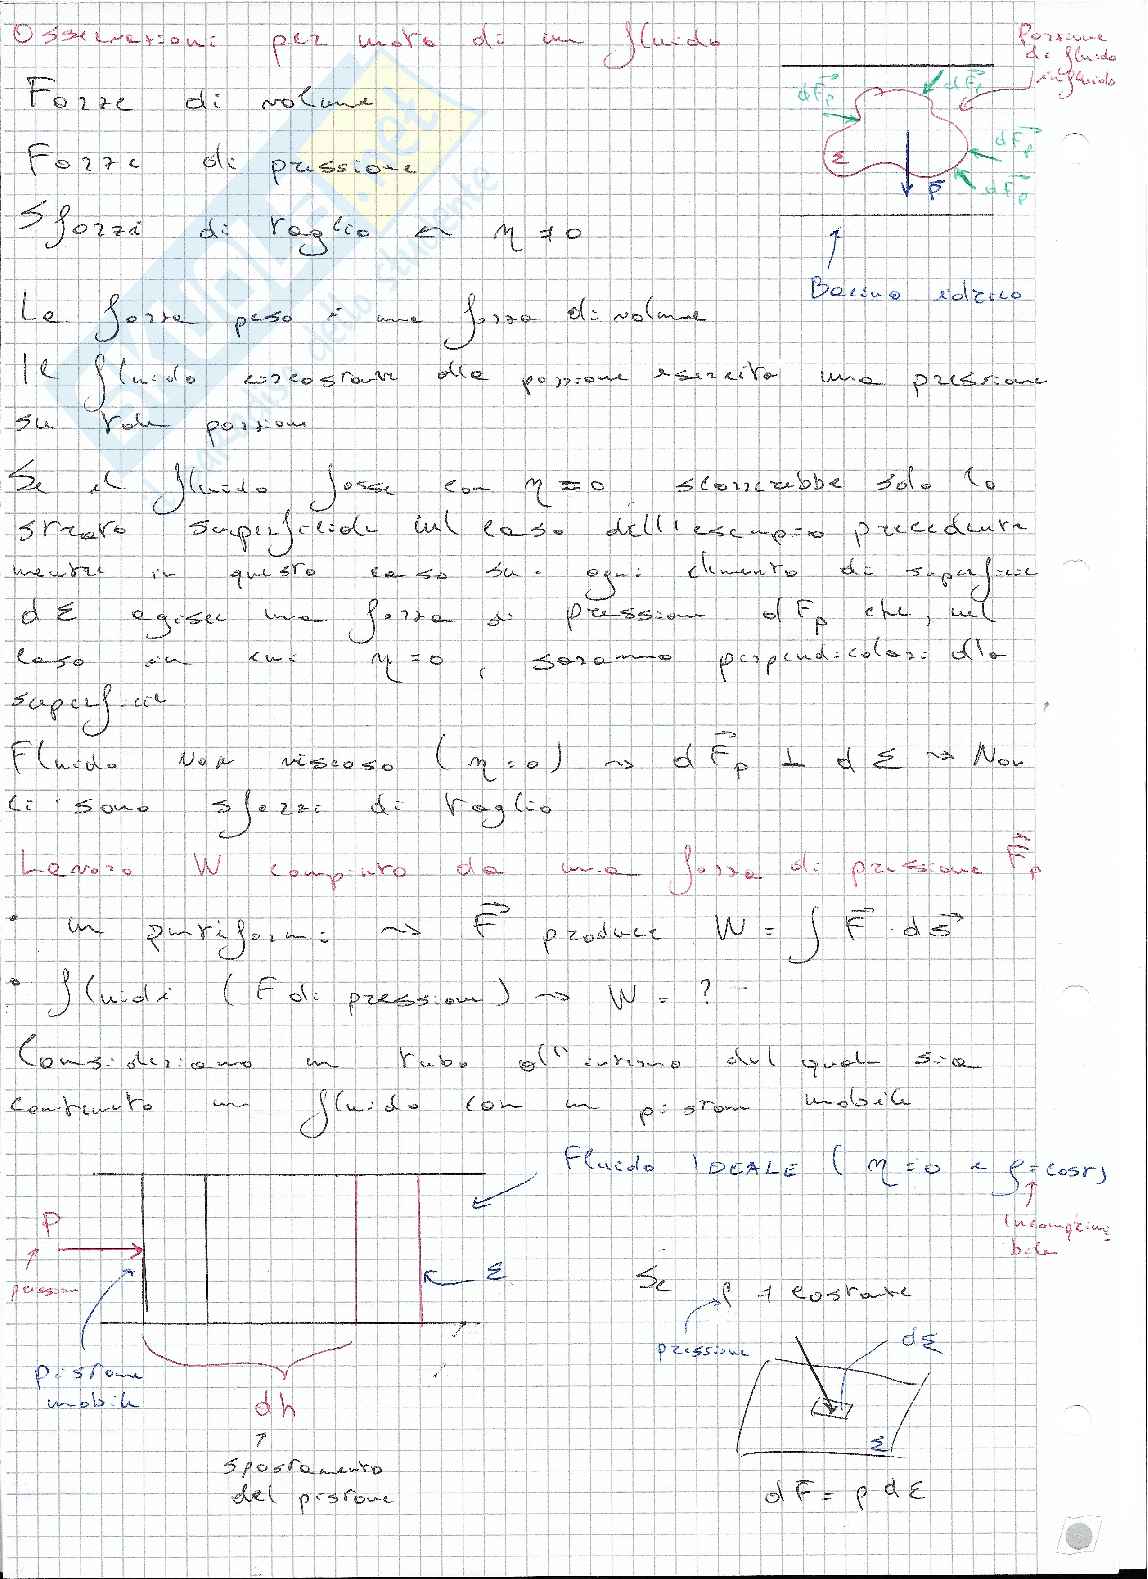 Osservazioni per moto di un fluido
Porzione
di fluido
in fluido
Forze di volume
dFp
dFp
Forze di pressione
Σ
dFp
P
dFp
Sforzi di taglio ← η ≠ 0
Bacino idrico
La forza peso è una forza di volume
Il fluido circostante alla porzione esercita una pressione
su tale porzione
Se il fluido fosse con η = 0, scorrerebbe solo lo
strato superficiale nel caso dell'esempio precedente
mentre in questo caso su ogni elemento di superficie
dΣ agisce una forza di pressione dFp che, nel
caso in cui η = 0, saranno perpendicolari alla
superficie
Fluido non viscoso (η = 0) → dFp ⊥ dΣ → Non
ci sono sforzi di taglio
Lavoro W compiuto da una forza di pressione Fp
• m puntiformi → F produce W = ∫ F · ds
• fluidi (F di pressione) → W = ?
Consideriamo un tubo all'interno del quale sia
contenuto un fluido con un pistone mobile
Fluido IDEALE (η = 0 e ρ = cost)
Incomprimi
bile
P
pressione
Σ
Se p ≠ costante
pressione
dΣ
pistone
mobile
dh
Σ
spostamento
del pistone
dF = p dΣ
SKUOLA.net
dello studente